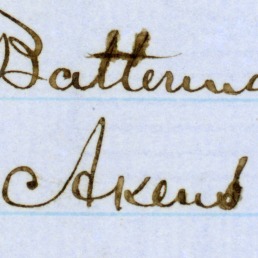 Batterma
Akens